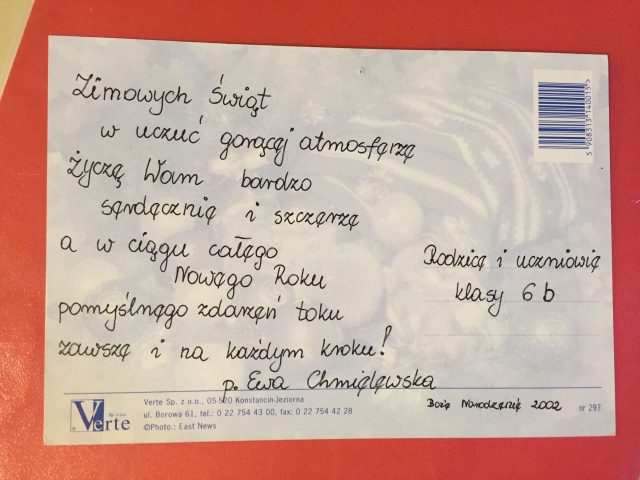 Zimowych Świąt
w uczuć gorącej atmosferze
Życzę Wam bardzo
serdecznie i szczerze
a w ciągu całego
Nowego Roku
pomyślnego zdarzeń toku
zawsze i na każdym kroku!
p. Ewa Chmielewska
Rodzice i uczniowie
klasy 6 b
Boże Narodzenie 2002
5 908313 140015 >
Verte Sp. z o.o.
Verte Sp. z o.o., 05-520 Konstancin-Jeziorna
ul. Borowa 61, tel.: 0 22 754 43 00, fax: 0 22 754 42 28
©Photo.: East News
nr 297